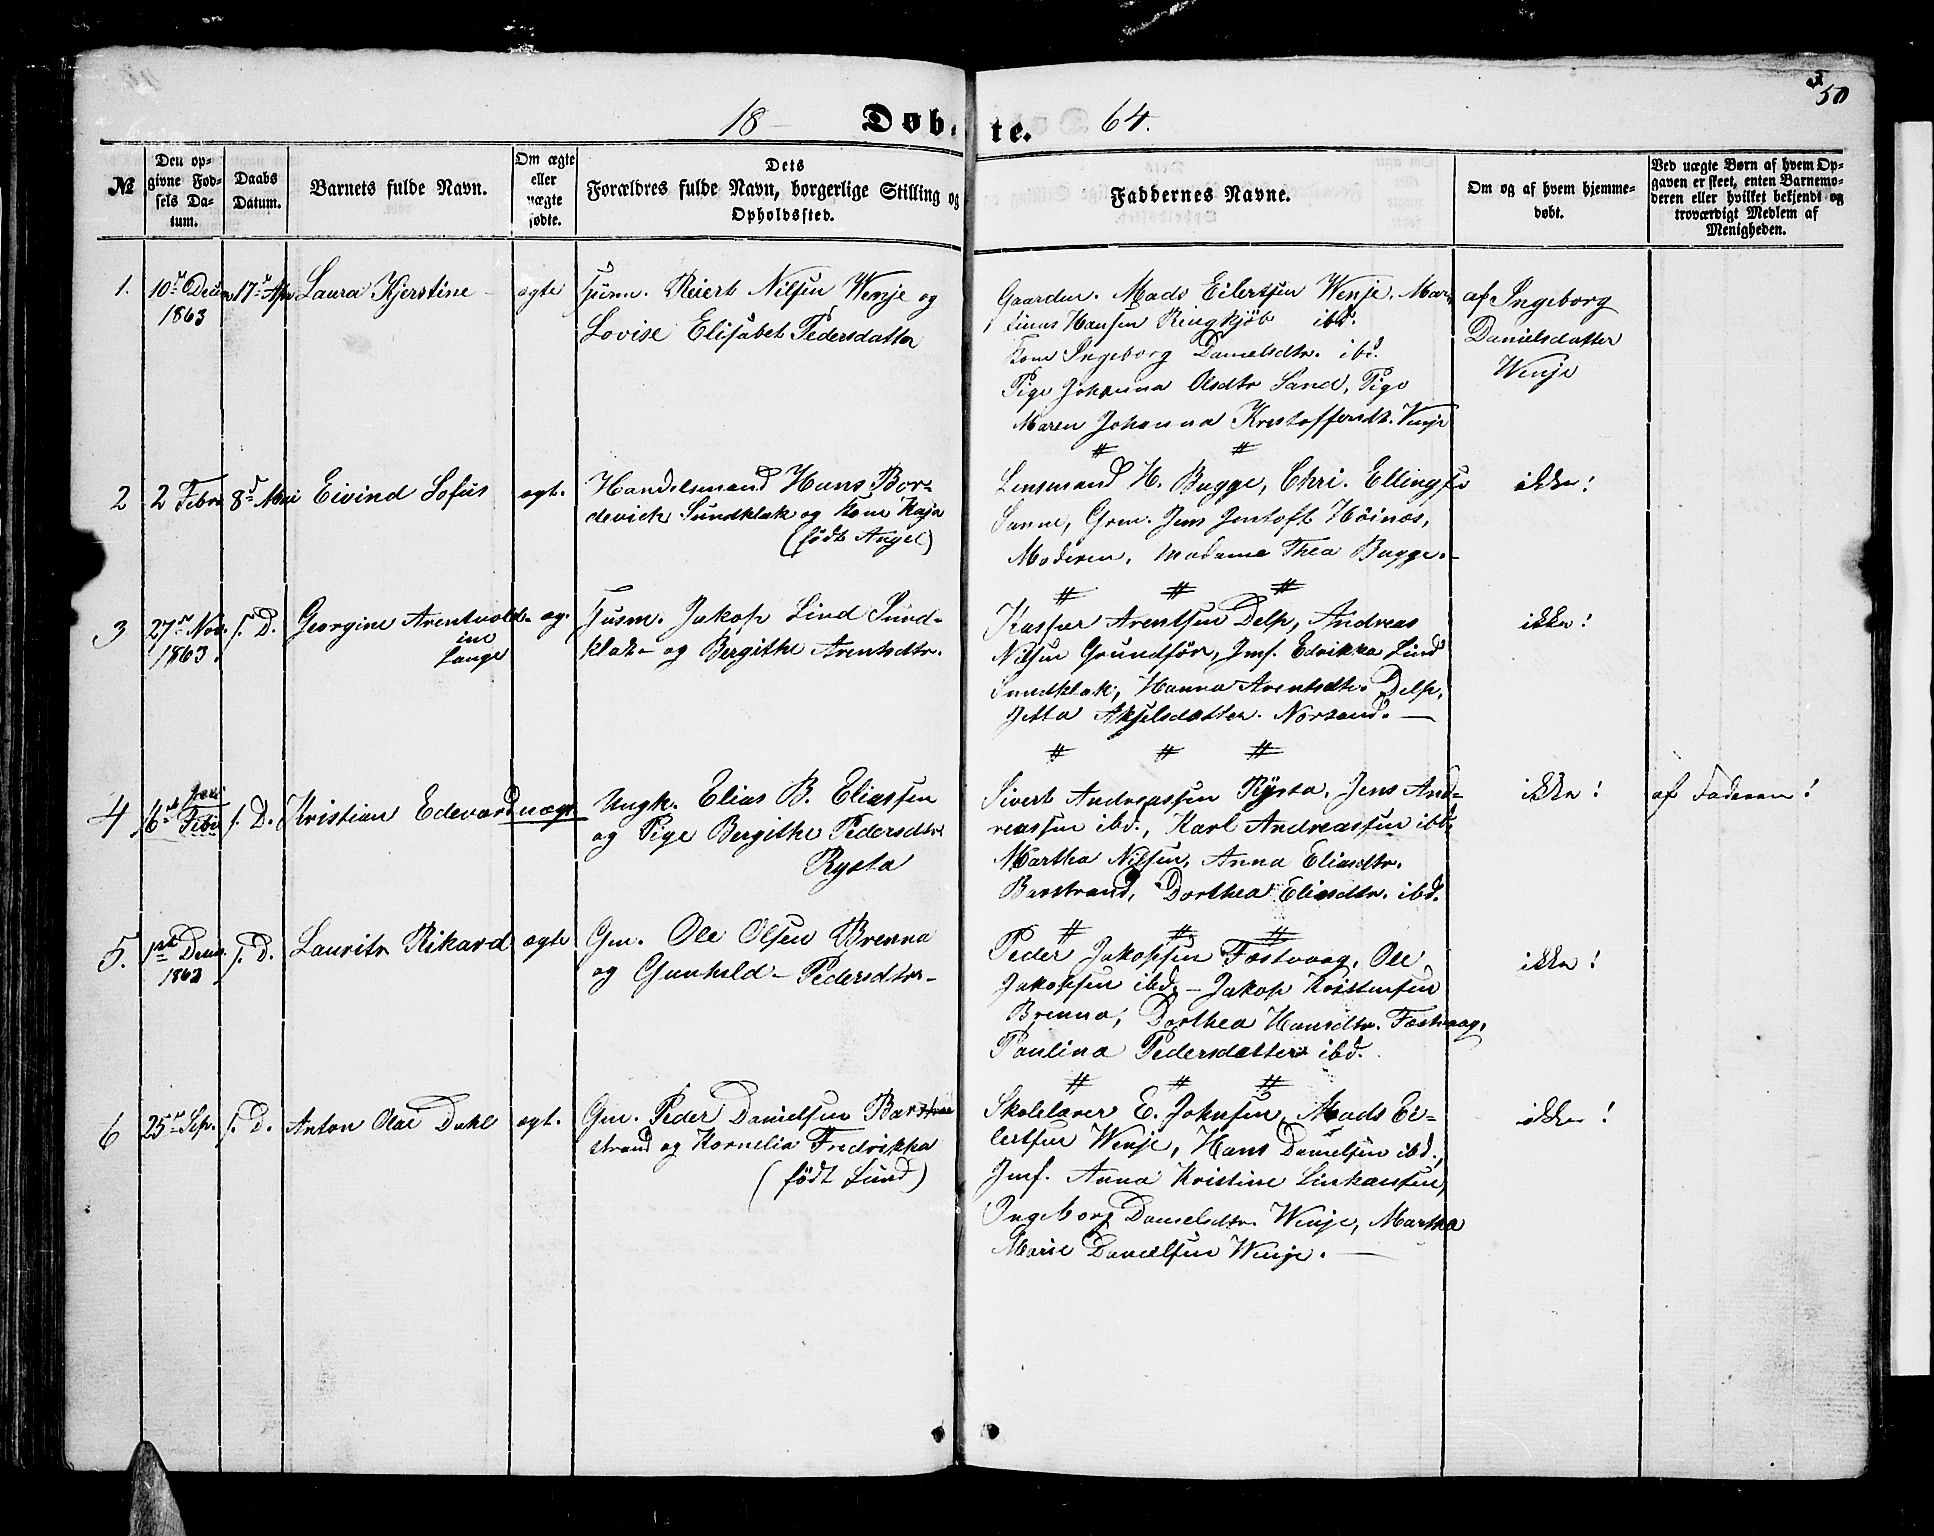 50
18 Døbte. 64.
№
Den opgivne Fødsels Datum.
Daabs Datum.
Barnets fulde Navn.
Om ægte eller uægte fødte.
Dets Forældres fulde Navn, borgerlige Stilling og Opholdssted.
Faddernes Navne.
Om og af hvem hjemmedøbt.
Ved uægte Børn af hvem Opgaven er skeet, enten Barnemoderen eller hvilket bekjendt og troværdigt Medlem af Menigheden.
1. 10de Decem 1863 17de Apr Laura Kjerstine ægte
Husm. Reiert Nilsen Wenje og
Lovise Elisabet Pedersdatter
Gaardm. Mads Eilertsen Wenje, Mari
linus Hansen Ringkjøb ibd.
Kone Ingeborg Danielsdtr. ibd.
Pige Johanna Olsdtr Sand, Pige
Maren Johanna Kristoffersdt. Wenje
af Ingeborg
Danielsdatter
Wenje
# #
2 2 Febr 8de Mai Eivind Sofus ægt.
Handelsmand Hans Bor-
devick Sundklak og Kone Kaja
(født Angel)
Lensmand H. Bugge, Chri. Ellingsen
Sanne, Grm. Jens Jentoft Höines,
Moderen, Madame Thea Bugge.
ikke!
# # #
3 27de Nov. 1863. s. D. Georgine Arentvold-
ine
Lange
æg.
Husm. Jakop Lind Sund-
klak- og Bergithe Arentsdtr.
Kasper Arentsen Delp, Andreas
Nilsen Grundför, Jmf. Edrikka Lind
Sundklak, Hanna Arentsdtr. Delp,
Jetta Akselsdatter. Norsand.
ikke!
# # #
4 16de Jani Febr s. D. Kristian Edevard uægt
Ungk. Elias B. Eliassen
og Pige Bergithe Pedersdtr
Rysta
Sivert Andreassen Rysta, Jens And-
reassen ibd., Karl Andreassen ibd,
Martha Nilsen, Anna Eliasdtr.
Barstrand, Dorthea Eliasdtr. ibd.
ikke!
af Faderen!
# # #
5. 1ste Decm. 1863 s. D. Lauritz Rikard ægte
Gm. Ole Olsen Brenna
og Gunhild Pedersdtr
Peder Jakopsen Fæstvaag, Ole
Jakopsen ibd, Jakop Kristensen
Brenna, Dorthea Hansdtr. Fæstvaag,
Paulina Pedersdatter ibd.
ikke!
# # #
6 25de Sep. s. D. Anton Olai Dahl ægt.
Gm. Peder Danielsen Bar
strand og Kornelia Fredrikka
(født Lund)
Skolelærer E. Johnsen, Mads Ei-
lertsen Wenje, Hans Danielsen ibd.,
Jmf. Anna Kristine Linkansen,
Ingeborg Danielsdtr. Wenje, Martha
Marie Danielsen Wenje.
ikke!